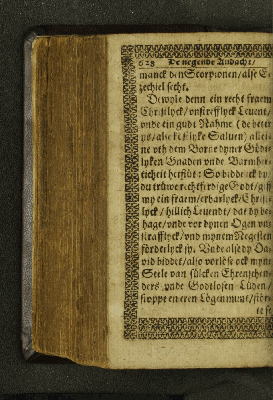 628 De negende Andacht/
manck den Scorpionen/ alse E-
zechiel secht.
Dewyle denn ein recht fraem
Christlyck/ vnstrefflyck Levent/
vnde ein gudt Nahme (de beter
ys/ als Salven) allei-
ne vth dem Borne dyner Gödt-
lyken Gnaden vnde Barmher-
ticheit herflüt: So bidde ick dy/
du trüwe rechtferdige Godt/ giff
my ein fraem/ erbarlyck/ Christ-
lyck/ hillich Levendt/ dat dy be-
hage/ vnde vor dynen Ogen vn-
straflyck/ vnd mynem Negesten
förderlyck sy. Vnde alse dy Da-
vid biddet/ also vorlöse ock myne
Seele van sülcken Ehrenschen-
ders vnde Godtlosen Lüden/
stoppe en eren Lögenmunt/
te se